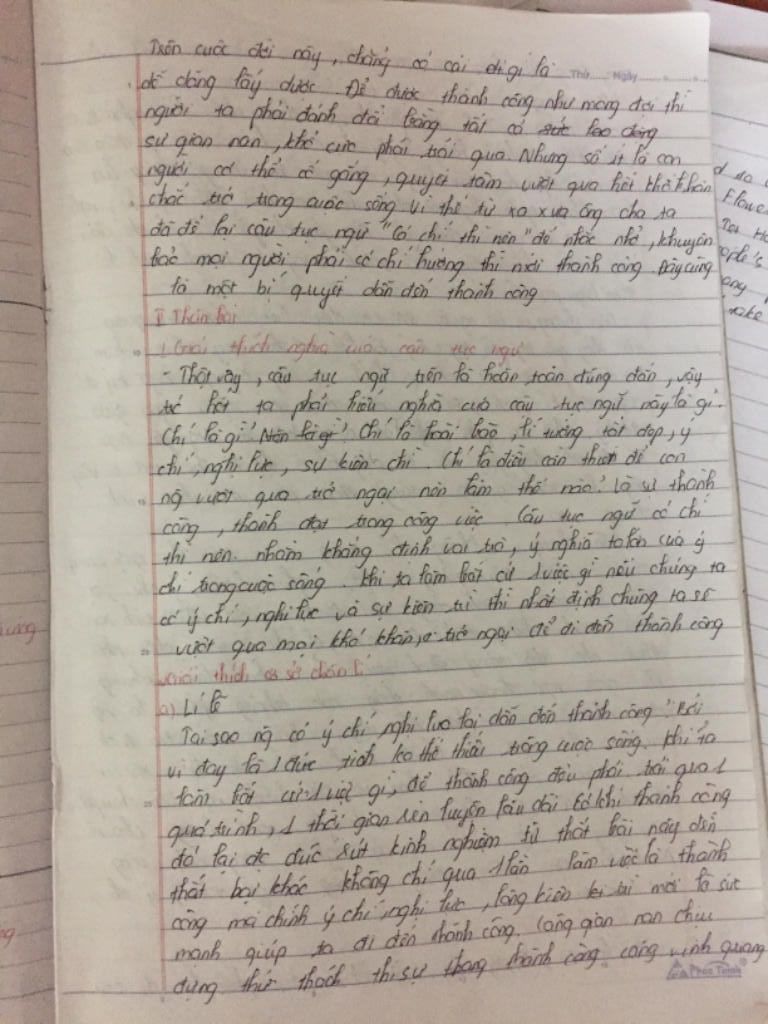 Trên cuộc đời này, chẳng có cái gì là
Thứ Ngày
dễ dàng lấy được. Để được thành công như mong đợi thì
người ta phải đánh đổi bằng tất cả sức lao động
sự gian nan, khổ cực phải trải qua. Nhưng số ít là con
người có thể cố gắng, quyết tâm vượt qua hết khó khăn
trong cuộc sống vì thế từ xa xưa ông cha ta
đã để lại câu tục ngữ "Có chí thì nên" để nhắc nhở, khuyên
bảo mọi người phải có chí hướng thì mới thành công. Đây cũng
là một bí quyết dẫn đến thành công
II Thân bài
1. Giải thích nghĩa của câu tục ngữ
- Thật vậy, câu tục ngữ trên là hoàn toàn đúng đắn, vậy
hết ta phải hiểu nghĩa của câu tục ngữ này là gì.
Chí là gì? Nên là gì? Chí là hoài bão, lí tưởng tốt đẹp, ý
chí, nghị lực, sự kiên chì. Chí là điều cần thiết để con
ng vượt qua trở ngại nên làm thế nào? Là sự thành
công, thành đạt trong công việc. Câu tục ngữ có chí
thì nên. nhằm khẳng định vai trò, ý nghĩa to lớn của ý
chí trong cuộc sống. khi ta làm bất cứ 1 việc gì nếu chúng ta
có ý chí, nghị lực và sự kiên trì thì nhất định chúng ta sẽ
vượt qua mọi khó khăn, trở ngại để đi đến thành công
giải thích cơ sở chân lí
a) Lí lẽ
Tại sao ng có ý chí nghị lực lại dẫn đến thành công? Bởi
vì đây là 1 đức tính ko thể thiếu trong cuộc sống. khi ta
làm bất cứ 1 việc gì, để thành công đều phải trải qua 1
quá trình, 1 thời gian rèn luyện lâu dài có khi thành công
đó lại đc đúc rút kinh nghiệm từ thất bại này đến
thất bại khác không chỉ qua 1 lần làm việc là thành
công mà chính ý chí, nghị lực, lòng kiên trì mới là sức
mạnh giúp ta đi đến thành công. Càng gian nan chịu
đựng thử thách thì sự thành công càng vinh quang